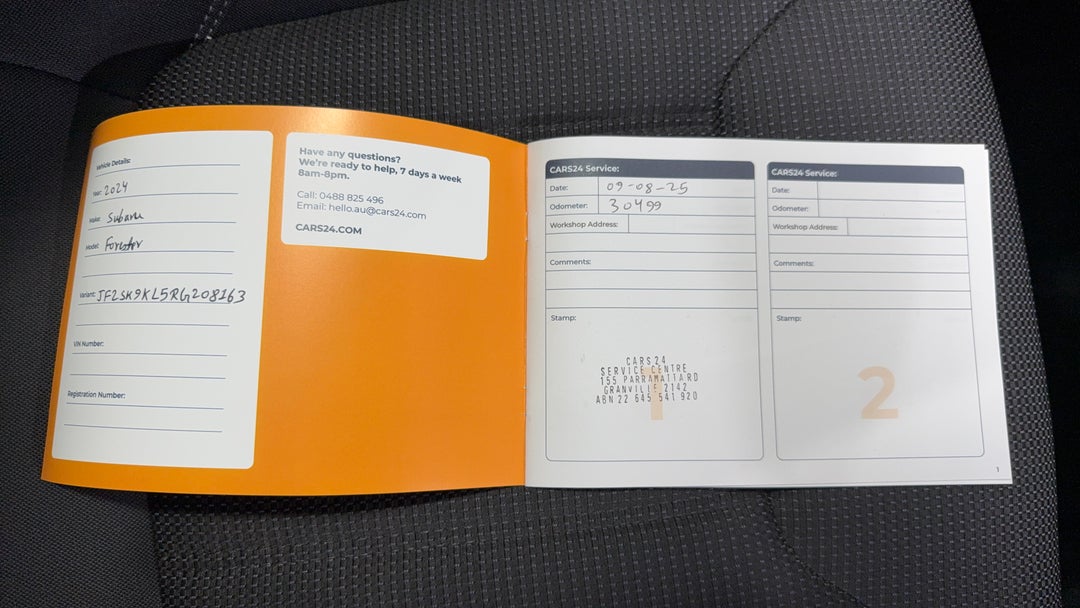 Vehicle Details:
Year: 2024
Make: Subaru
Model: Forester
Variant: JF2SK9KL5RG208163
VIN Number:
Registration Number:
Have any questions?
We're ready to help, 7 days a week
8am-8pm.
Call: 0488 825 496
Email: hello.au@cars24.com
CARS24.COM
CARS24 Service:
Date: 09-08-25
Odometer: 30499
Workshop Address:
Comments:
Stamp:
CARS24
SERVICE CENTRE
155 PARRAMATTA RD
GRANVILLE 2142
ABN 22 645 541 920
1
CARS24 Service:
Date:
Odometer:
Workshop Address:
Comments:
Stamp:
2
1